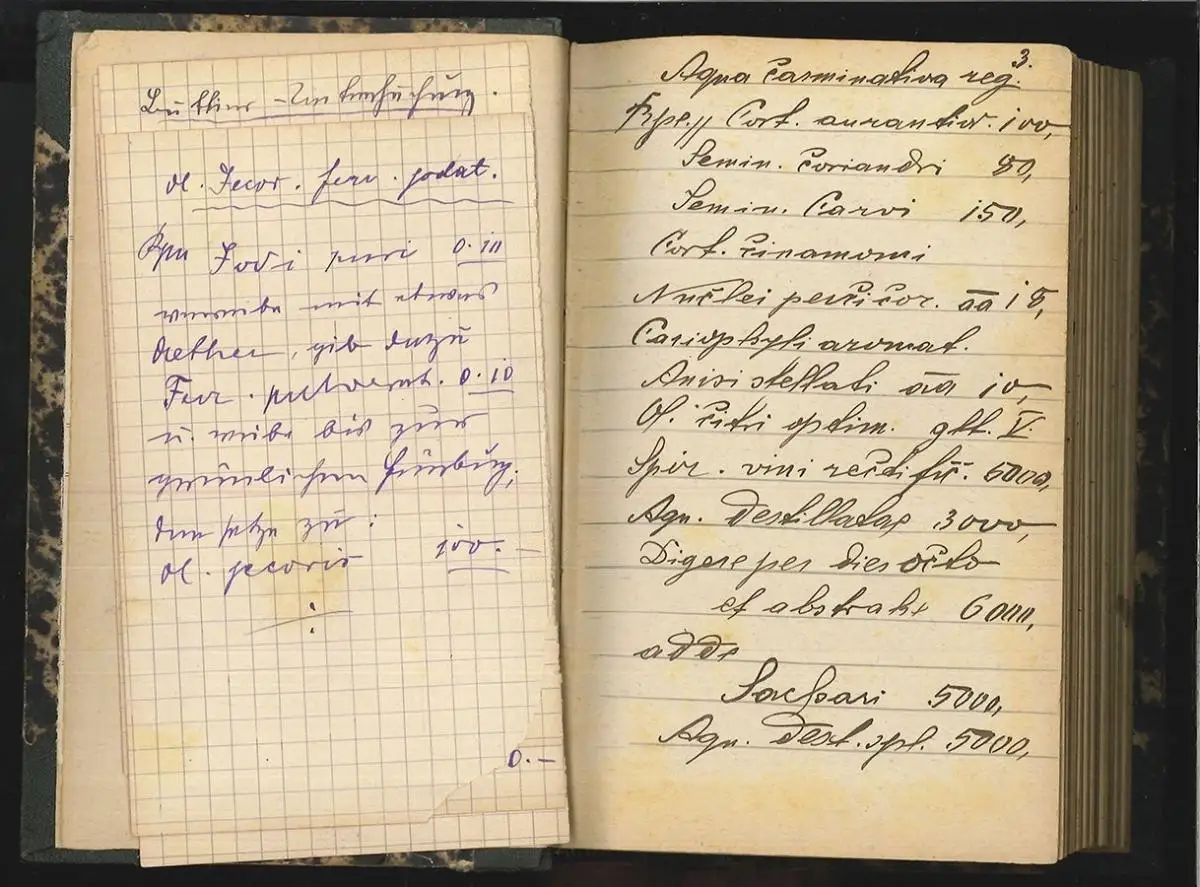 Untersuchung.
Ol. Jecor. ferr. jodat.
Rp. Jodi puri 0.10
verreibe mit etwas
Aether, gib dazu
Ferr. pulverat. 0.10
u. reibe bis zur
grünlichen Färbung,
dann setze zu:
Ol. jecoris 100.—
0.—
3.
Aqua Carminativa reg.
Rpe.// Cort. aurantior. 100,
Semin. Coriandri 80,
Semin. Carvi 150,
Cort. Cinamomi
Nuclei persicor. āā 18,
Cariophyli aromat.
Anisi stellati āā 10,
Ol. citri optim. gtt. V.
Spir. vini rectific. 5000,
Aqu. destillatae 3000,
Digere per dies octo
et abstrahe 6000,
adde
Sachari 5000,
Aqu. dest. spl. 5000,